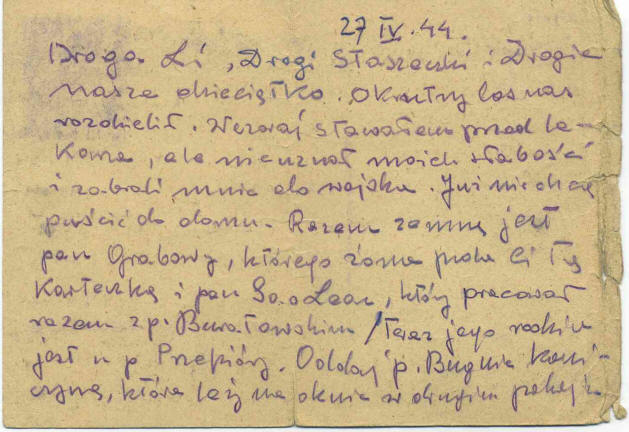 27 IV. 44.
Droga Li, Drogi Staszeczki i Drogie
nasze dzieciątko. Okrutny los nas
rozdzielił. Wczoraj stawałem przed le-
karza, ale nie uznał moich słabości
i zabrali mnie do wojska. Już nie chcą
puścić do domu. Razem zemną jest
pan Grabowy, którego żona poda Ci tę
karteczkę i pan, który pracował
razem z p. Buratowskim / teraz jego rodzina
jest u p Przepióry. Oddaj p. koni-
czynę, która leży na oknie w drugim pokoju